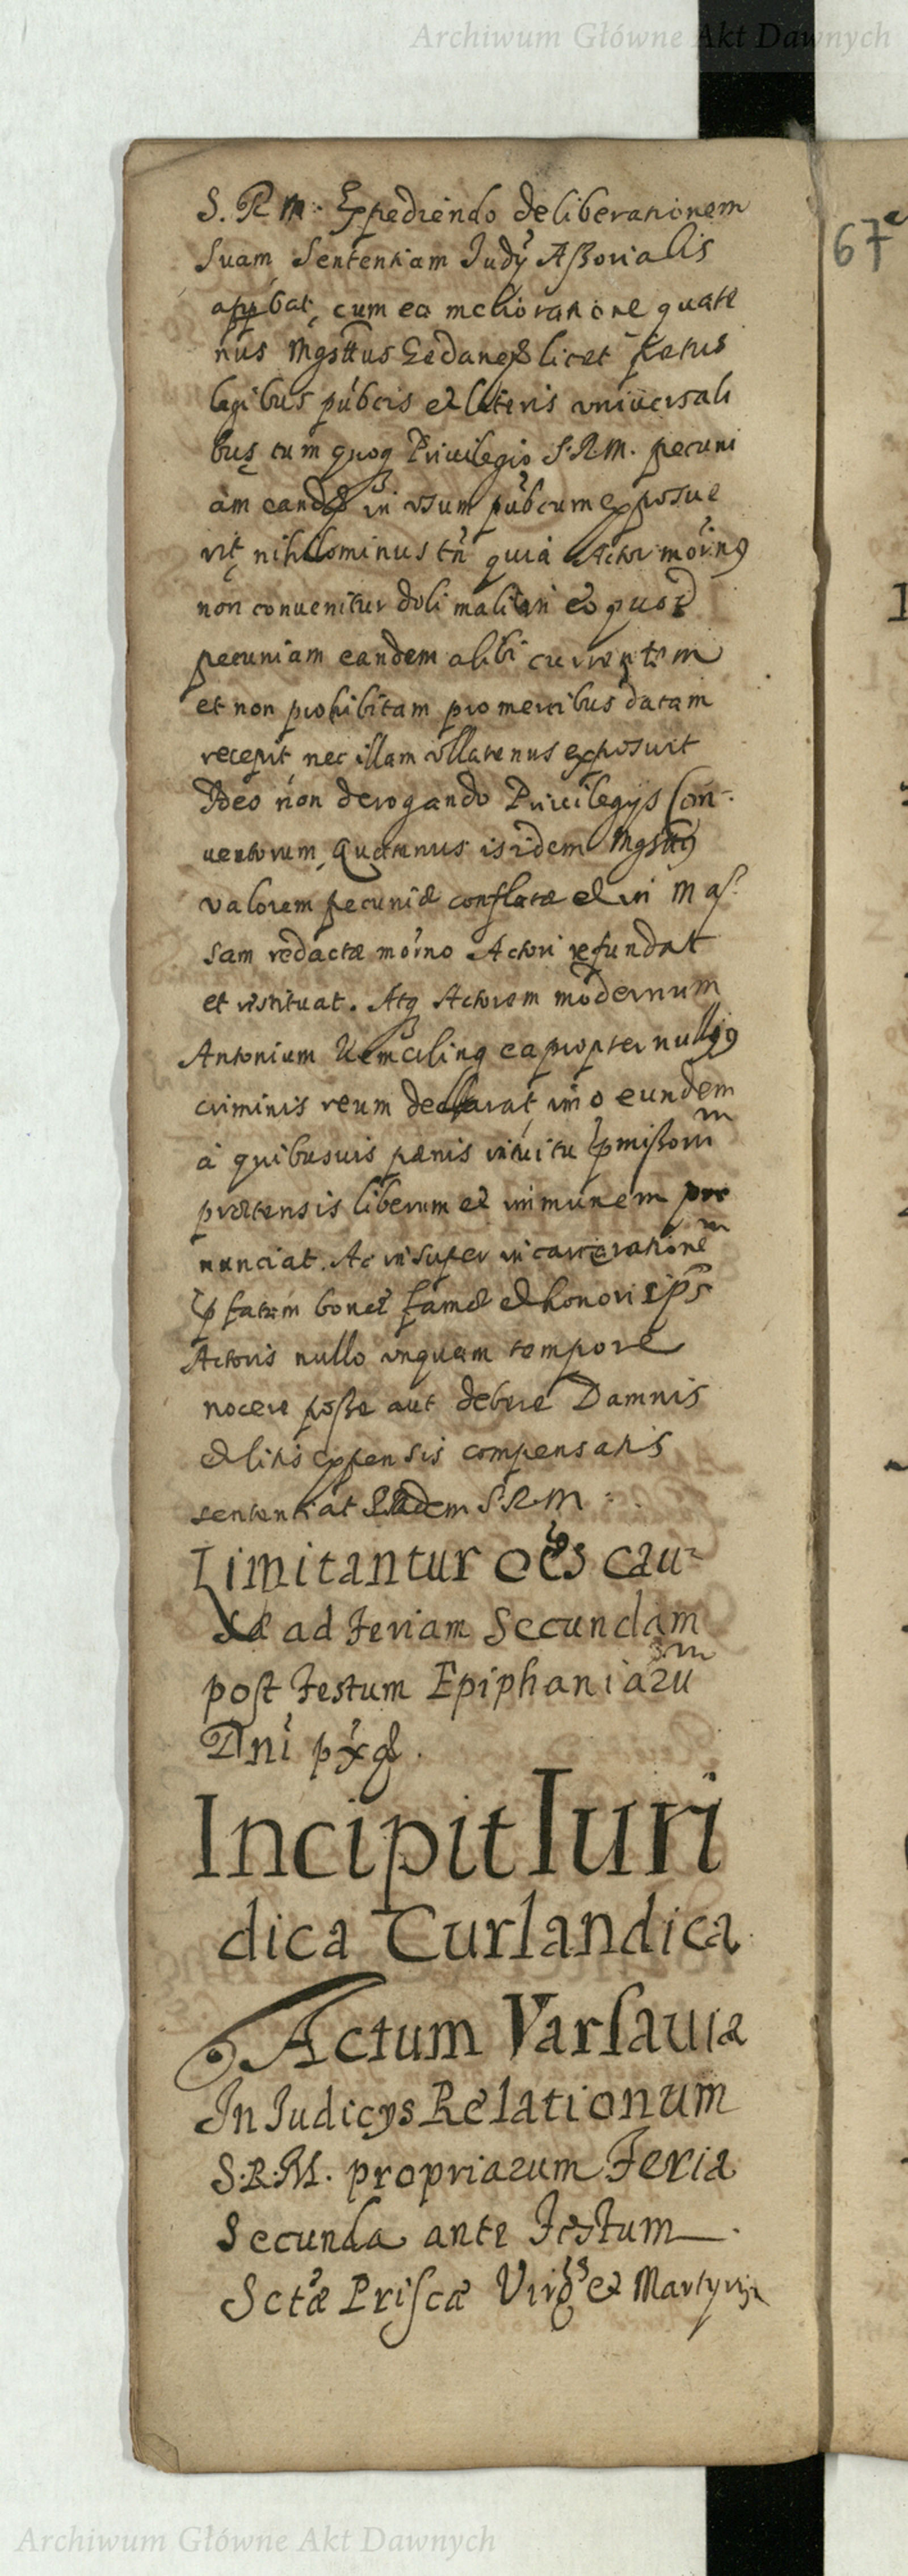 Archiwum Główne Akt Dawnych
S. R. M. Expediendo deliberationem
Suam Sententiam Judy Aßorialis
appbat, cum ea melioratione quate
nus Mgsttus Gedaneñ licet fretus
legibus pubcis et literis vniuersali
bus tum quoq Priuilegio S.R.M. pecuni
am eandẽ in vsum pubcum exposue
rit, nihilominus tñ quia Actor morñus
non conuenitur doli mali in eo quod
pecuniam eandem alibi currentem
et non prohibitam pro mercibus datam
recepit, nec illam vllatenus exposuit
Ideo non derogando Priuilegijs Con-
uentorum, Quatenus isidem Mgsttus
valorem pecuniæ conflatæ et in Mas
sam redactæ morno Actori refundat
et restituat. Atq Actorem modernum
Antonium ea propter nullius
criminis reum declarat, imo eundem
à quibusuis pænis intuitu pmißorm
prætensis liberum et immunem pro
nunciat. Ac insuper incarcerationem
pfatam bonæ famæ et honori ips
Actoris nullo vnquam tempore
nocere poße aut debere Damnis
et litis expensis compensatis
sententiat Eadem S.R.M.
Limitantur oẽs cau-
sæ ad Feriam Secundam
post Festum Epiphaniarum
Dni pxã.
Incipit Iuri
dica Curlandica
Actum Varsauiæ
In Iudicys Relationum
S.R.M. propriarum Feria
Secunda ante Festum
Sctæ Priscæ Virgs et Martyris
67
Archiwum Główne Akt Dawnych